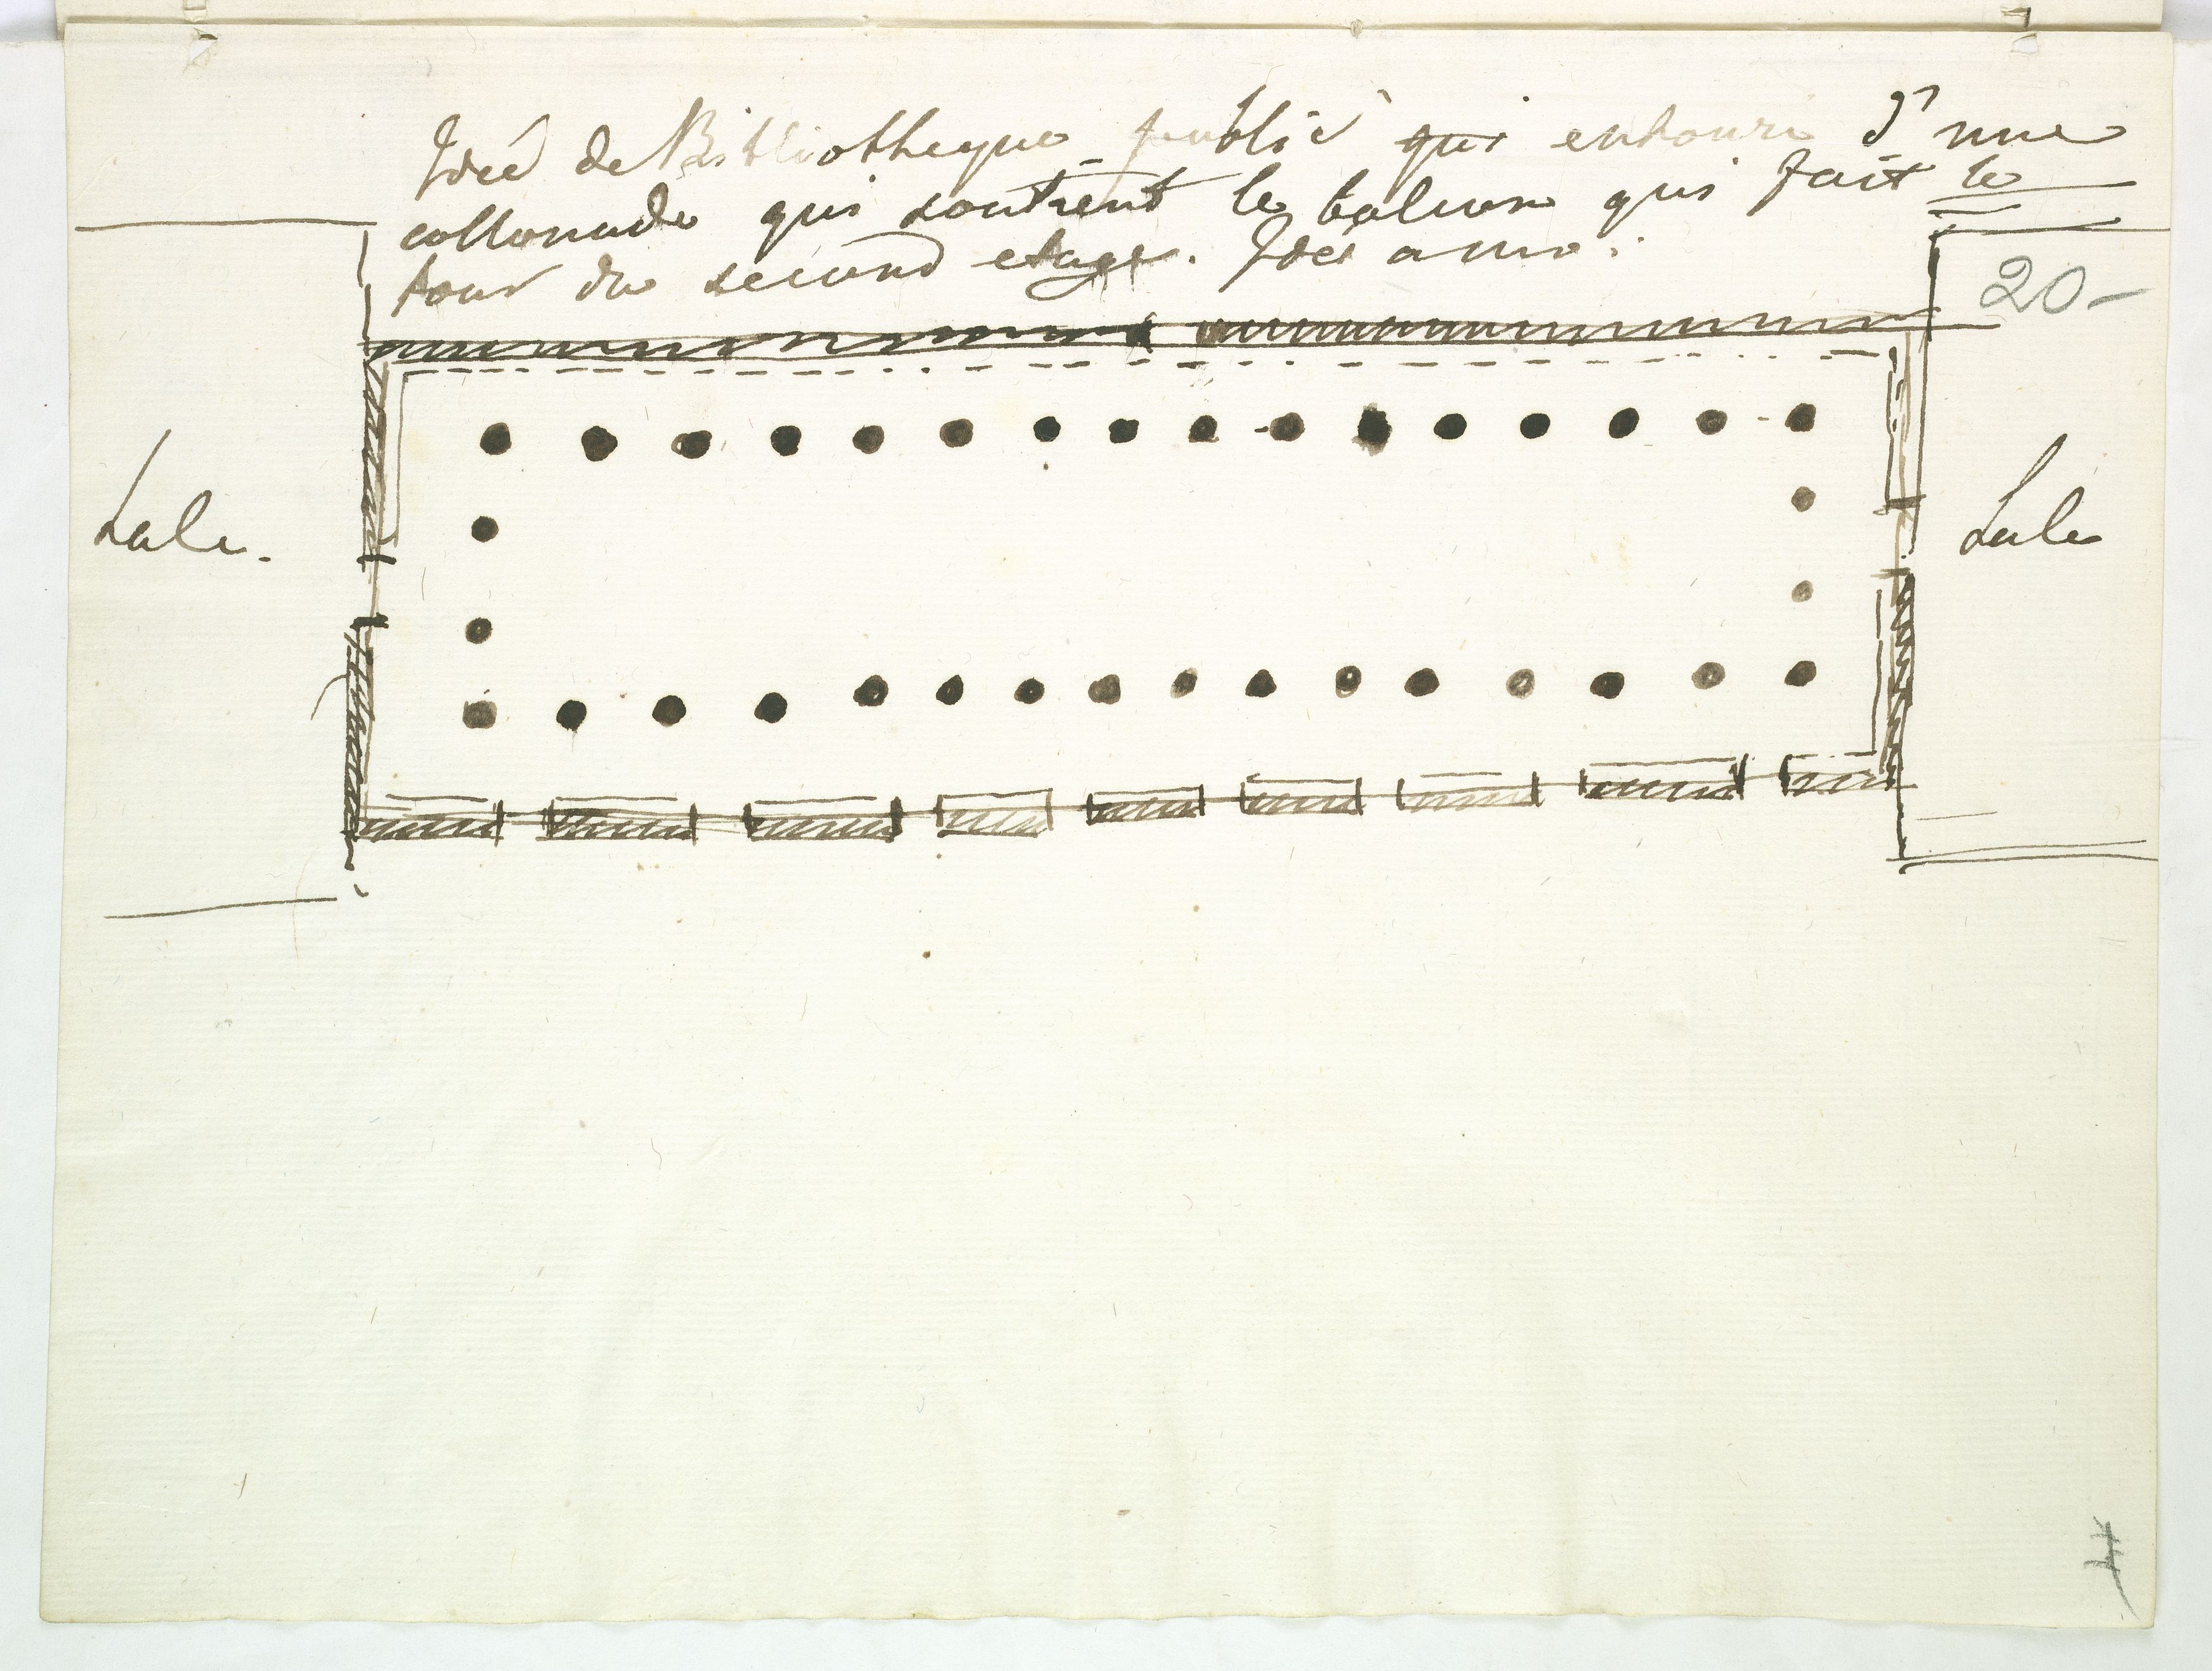 Ideé de Bibliotheque public qui entouré d'une
collonade qui soutient le balcon qui fait le
tour du second etage. Ideé a moi.
20-
Sale.
Sale